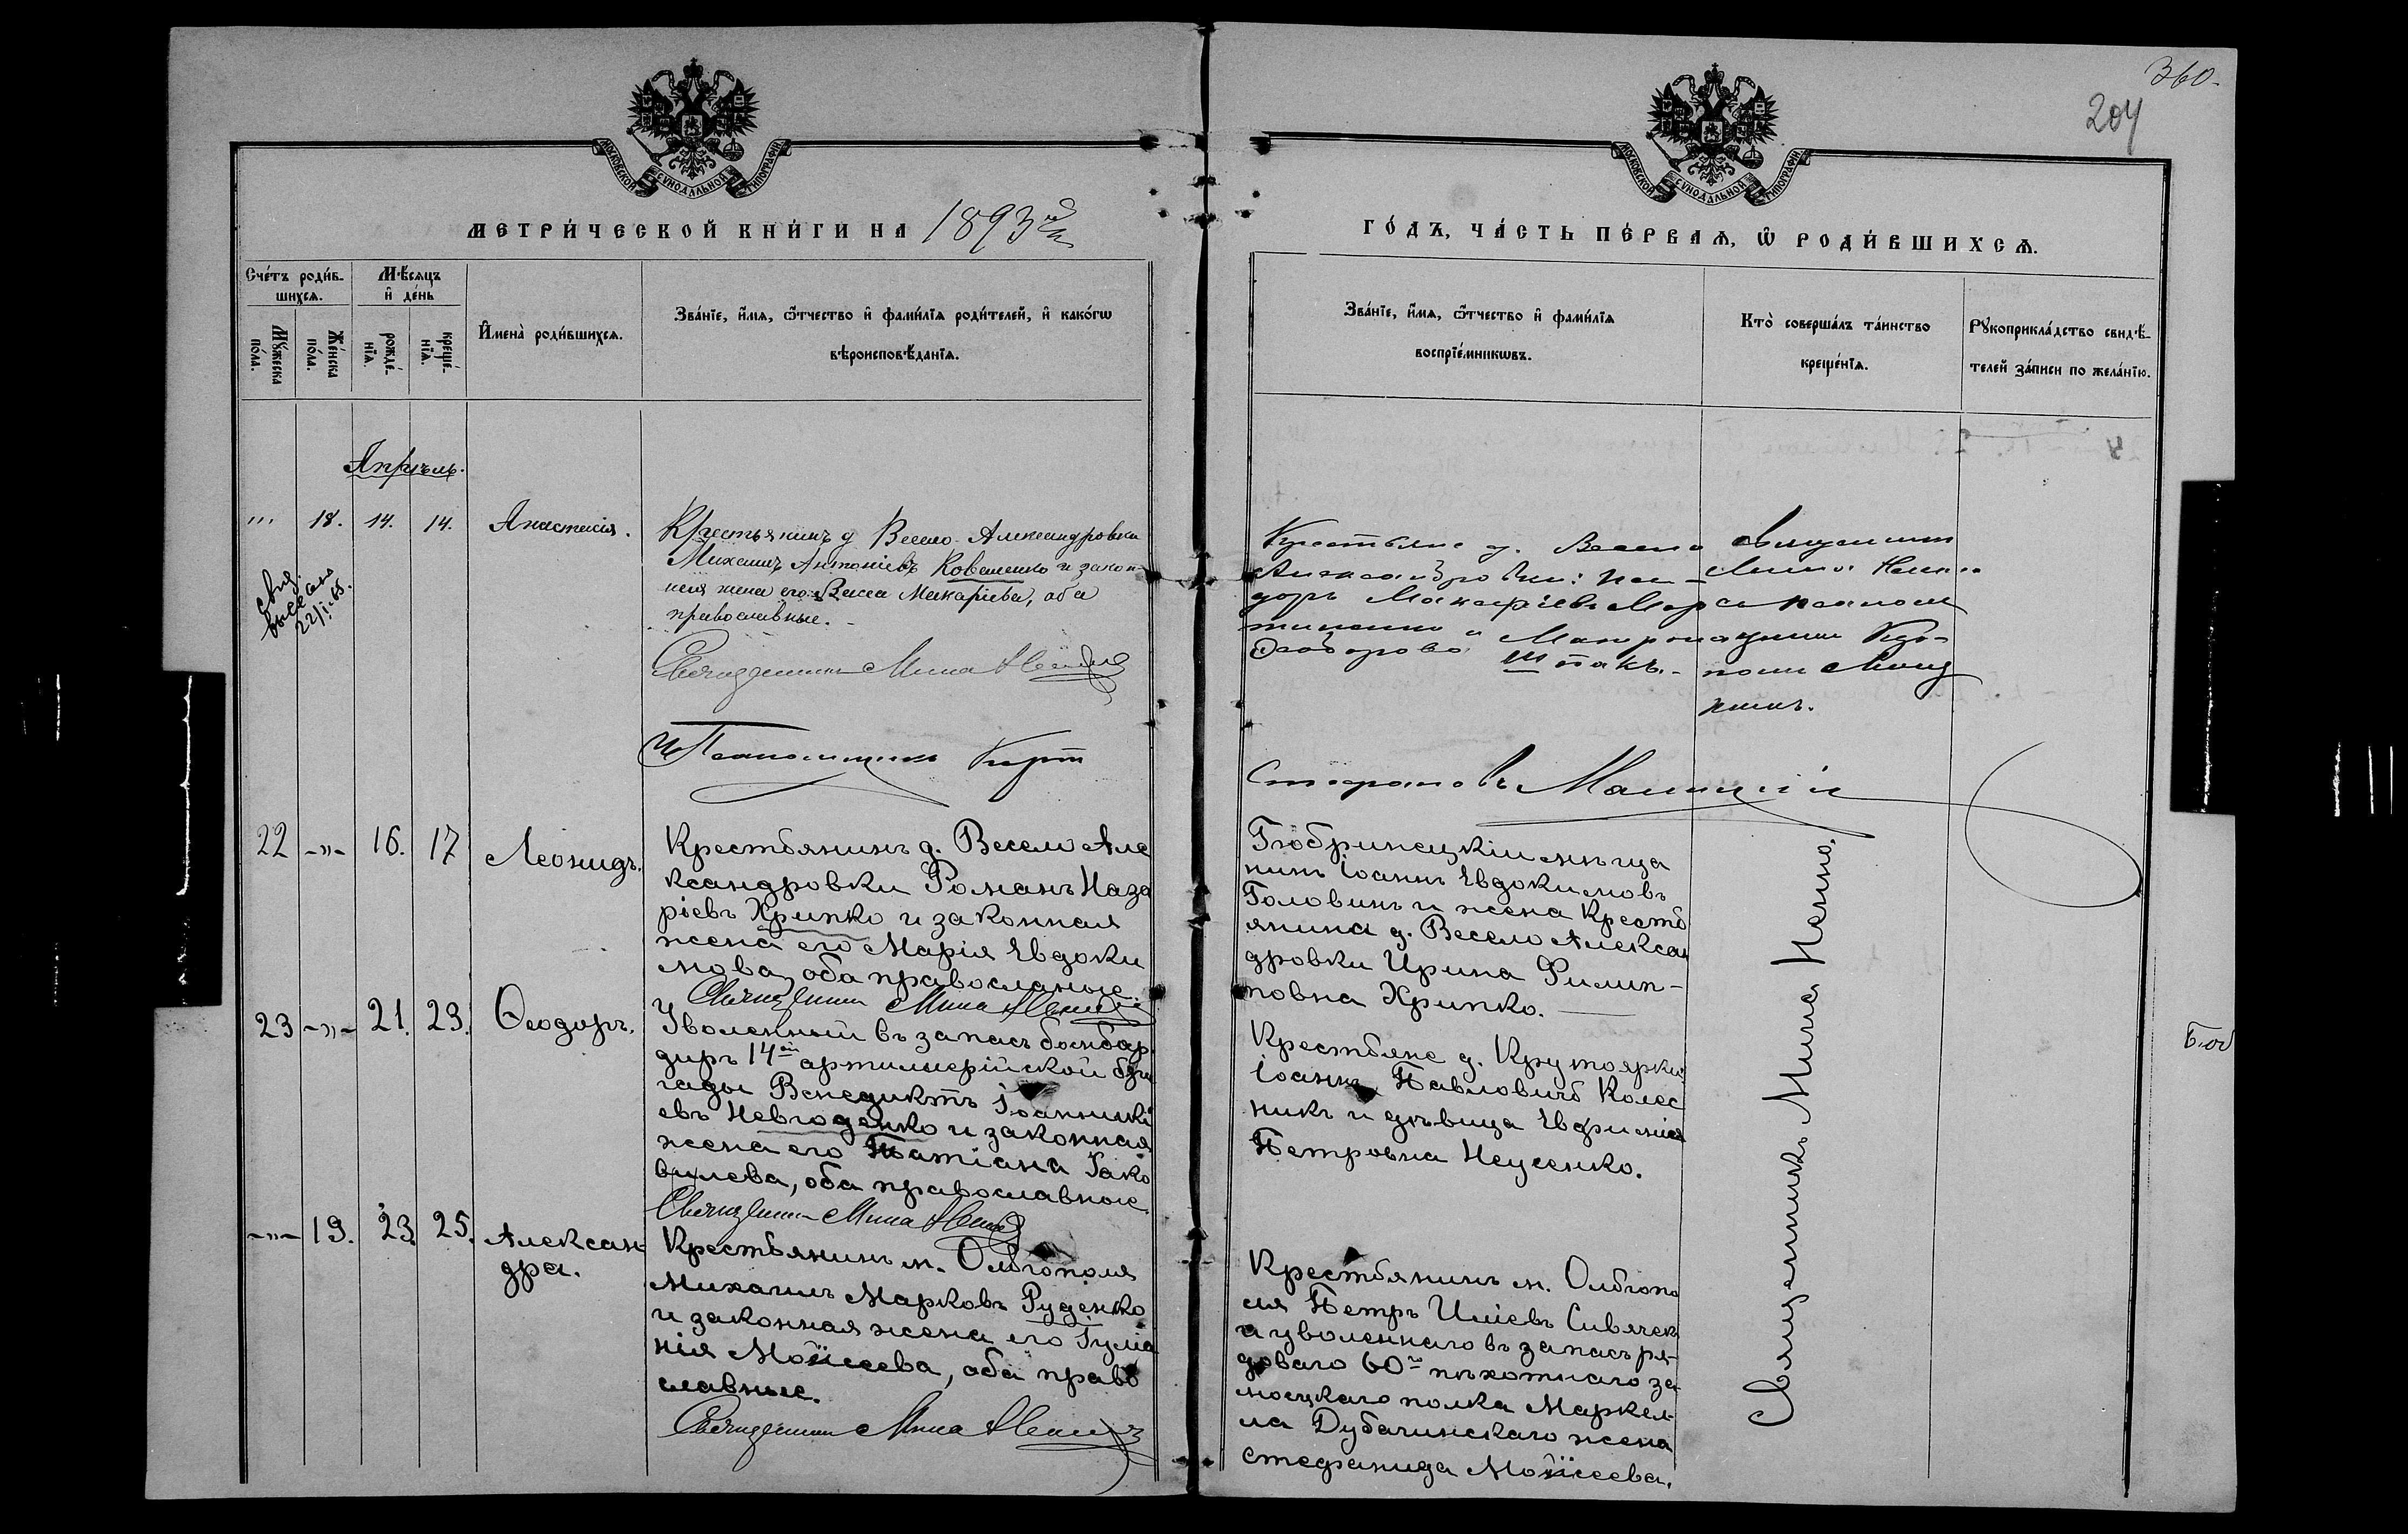 360.
204
МОСКОВСКОЙ СУНОДАЛЬНОЙ ТИПОГРАФІИ
МОСКОВСКОЙ СУНОДАЛЬНОЙ ТИПОГРАФІИ
МЕТРИ́ЧЕСКОЙ КНИ́ГИ НА 1893й
ГО́ДЪ, ЧА́СТЬ ПЕ́РВАѦ, Ѡ҆ РОДИ́ВШИХСѦ.
Сче́тъ роди́в-
шихсѧ.
Мѣ́сѧцъ
и҆ де́нь
Мꙋ́жеска
по́ла.
Же́нска
по́ла.
рожде́-
нїѧ.
креще́-
нїѧ.
И҆мена̀ роди́вшихсѧ.
Зва́нїе, и҆́мѧ, ѻ҆́тчество и҆ фами́лїѧ роди́телей, и҆ како́гѡ
вѣроисповѣ́данїѧ.
Зва́нїе, и҆́мѧ, ѻ҆́тчество и҆ фами́лїѧ
воспрїе́мникѡвъ.
Кто̀ соверша́лъ та́инство
креще́нїѧ.
Рꙋкоприкла́дство свидѣ́-
телей за́писи по жела́нїю.
Апрѣль.
18. 14. 14. Анастасія.
Крестьянинъ д Весело-Александровки
Михаилъ Антоніевъ Коваленко и закон-
ная жена его Васса Макаріева, оба
православные.-
Священникъ Мина
свид.
выслано
22/I-65.
Крестьяне д. Весело
Александровки:
доръ Макаріевъ Мар
тиненко и Матрона
Ѳеодорова Шпакъ.-
Священникъ
Мина
псалом
щикъ
И Псаломщикъ
Стефановъ
22 -"- 16. 17 Леонидъ.
Крестьянинъ д. Весело Але
ксандровки Романъ Наза
ріевъ Хрипко и законная
жена его Марія Евдоки
мова, оба православные.
Священникъ Мина
Бобринецкій мѣща
нинъ Іоаннъ Евдокимовъ
Головинъ и жена Кресть
янина д. Весело Алексан
дровки Ирина Филип-
повна Хрипко.
23 -"- 21. 23. Ѳеодоръ.
Уволенный въ запасъ бомбар
диръ 14ой артиллерійской бри
гады Венедиктъ Іоанники
евъ Невгоденко и законная
жена его Татіана Іако
влева, оба православные
Священникъ Мина
Крестьяне д. Крутоярки:
Іоаннъ Павловичъ Колес
никъ и дѣвица Евфимія
Петровна Неусенко.
-"- 19. 23. 25. Алексан
дра.
Крестьянинъ м. Ольгополя
Михаилъ Марковъ Руденко
и законная жена его Іулiа
нія Моисеева, оба право
славные.
Священникъ Мина
Крестьянинъ м. Ольгопо
ля Петръ Иліевъ Сивачек
и уволеннаго въ запасъ ря-
доваго 60го пѣхотнаго за
мосцкаго полка Маркел-
ла Дубачинскаго жена
Стефанида Моисеева.
Священникъ Мина